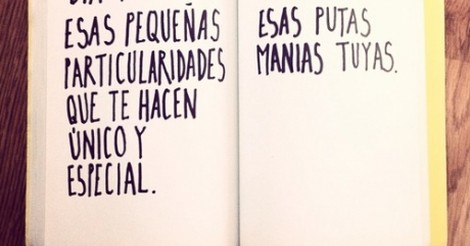 ESAS PEQUEÑAS
PARTICULARIDADES
QUE TE HACEN
ÚNICO Y
ESPECIAL.
ESAS PUTAS
MANIAS TUYAS.